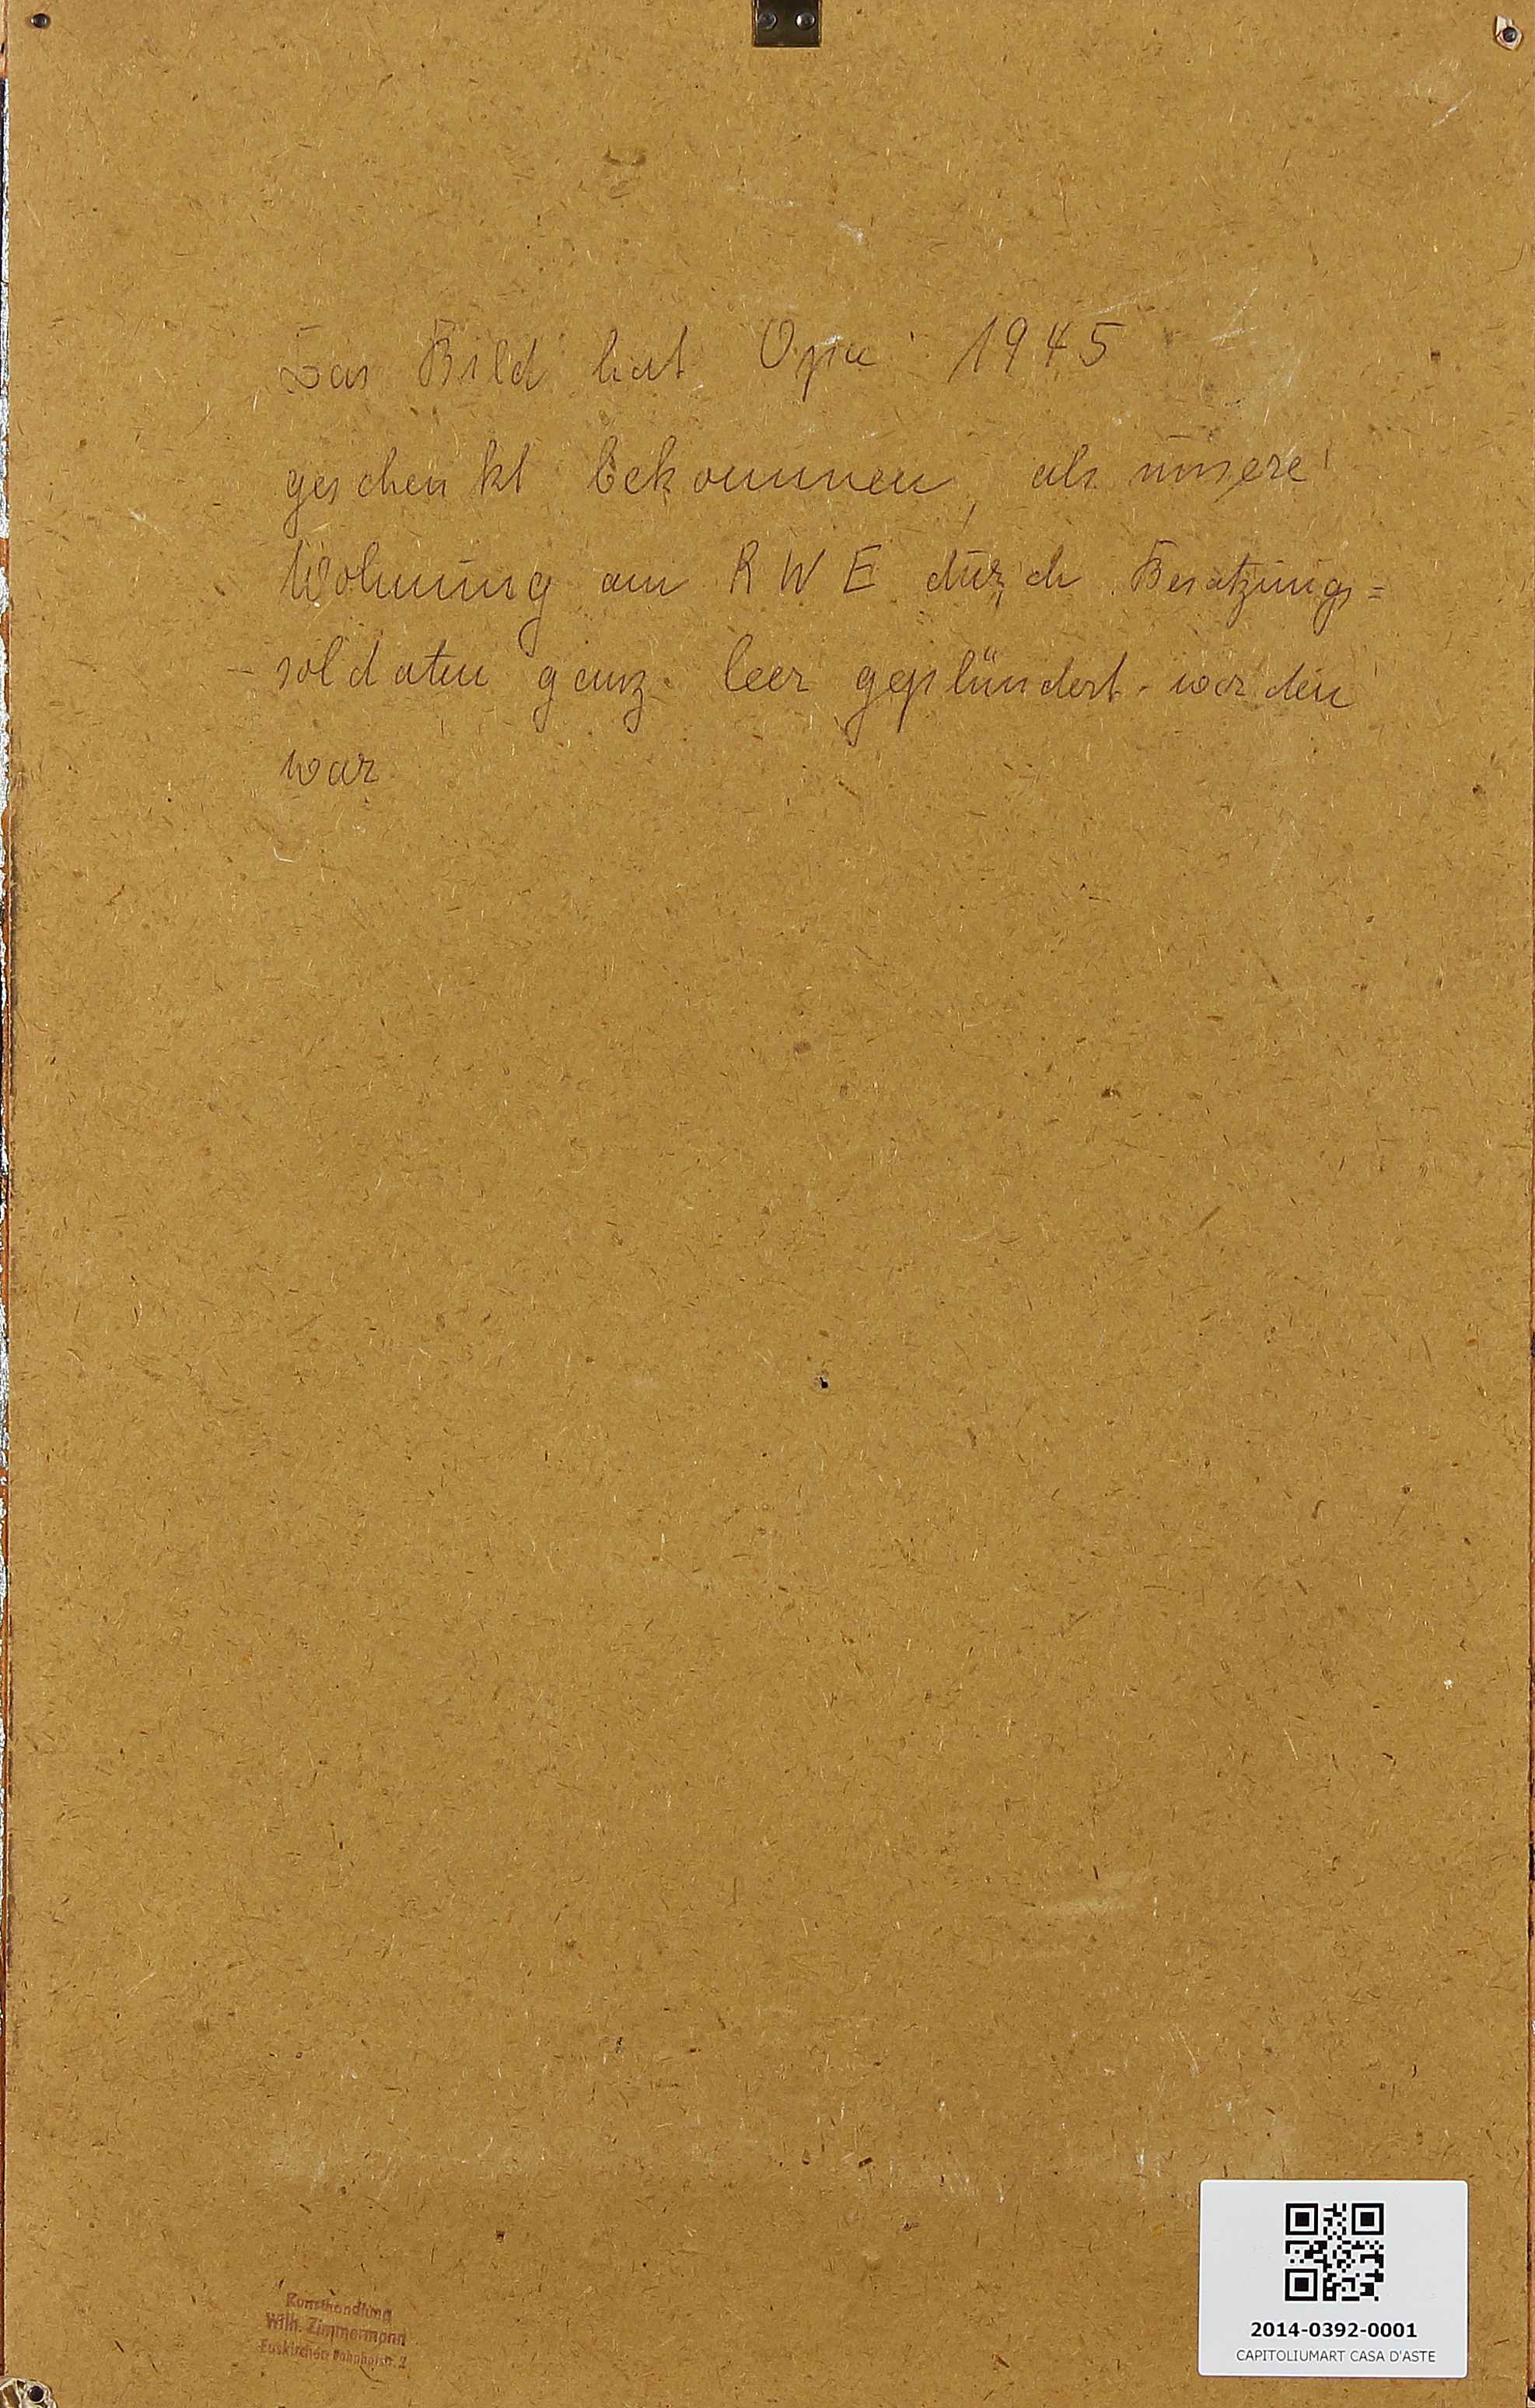 Das Bild hat Opa 1945
geschenkt bekommen, als unsere
Wohnung am RWE durch Besatzungs=
soldaten ganz leer geplündert worden
war
Kunsthandlung
Wilh. Zimmermann
Euskirchen Bahnhofstr. 2
2014-0392-0001
CAPITOLIUMART CASA D'ASTE